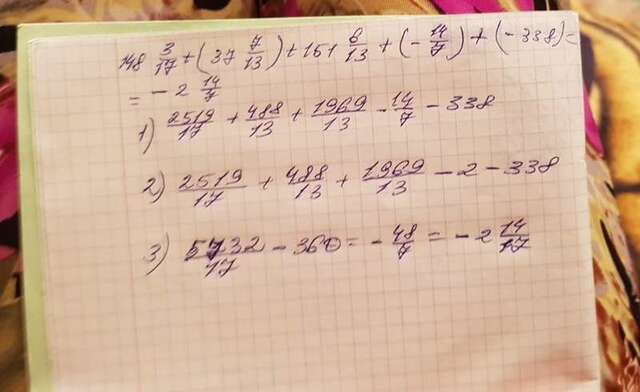 148 3/17 + (37 7/13) + 151 6/13 + (- 14/7) + (- 338) =
= - 2 14/7
1) 2519/17 + 488/13 + 1969/13 - 14/7 - 338
2) 2519/17 + 488/13 + 1969/13 - 2 - 338
3) 5732/17 - 360 = - 48/7 = - 2 14/17